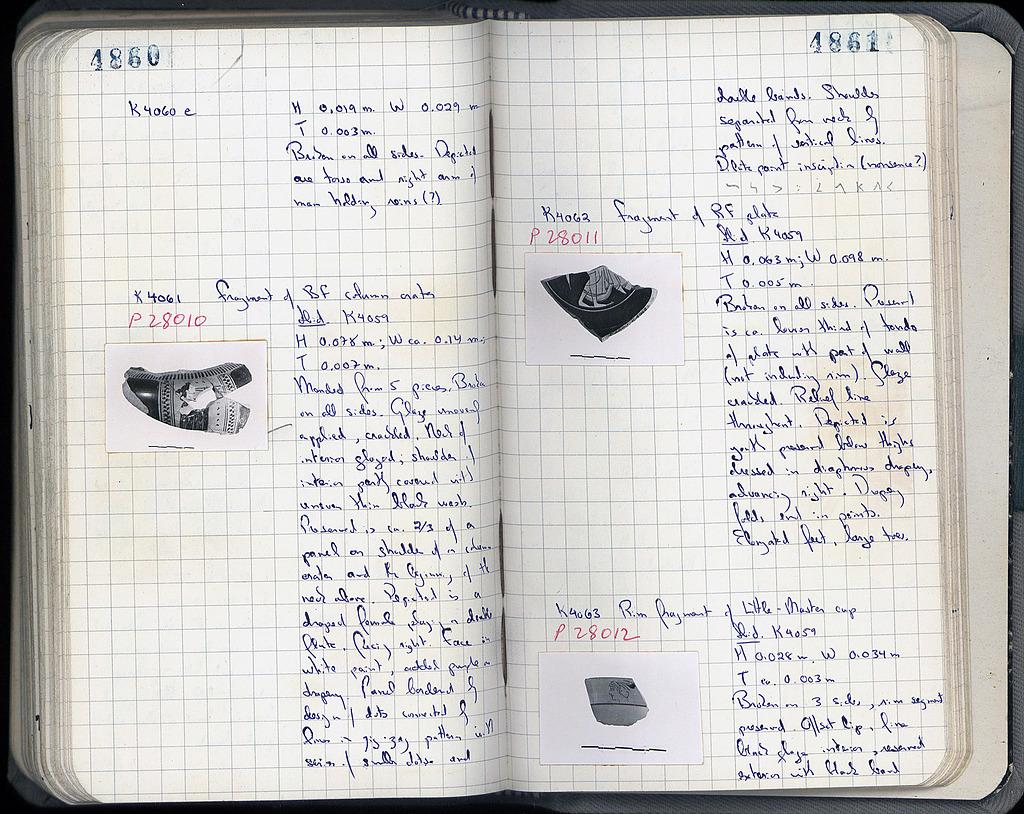 4860
K4060 e
H 0.019 m. W 0.029 m
T 0.003 m.
Broken on all sides. Depicted
are torso and right arm of
man holding reins (?)
K4061 fragment of BF column crater
P 28010
Ibid. K4059
H 0.078 m.; W ca. 0.14 m.;
T 0.007 m.
Mended from 5 pieces. Broken
on all sides. Glaze unevenly
applied, crackled. Neck of
interior glazed; shoulder of
interior partly covered with
uneven thin black wash.
Preserved is ca. 2/3 of a
panel on shoulder of a column
crater and the beginning of the
neck above. Depicted is a
draped female playing a double
flute, facing right. Face in
white paint, added purple on
drapery. Panel bordered by
design of dots connected by
lines in zig-zag pattern with
series of smaller dots and
4861
double bands. Shoulder
separated from neck by
pattern of vertical lines.
White paint inscription (nonsense?)
K4062 fragment of RF plate
P 28011
Ibid. K4059
H 0.063 m; W 0.098 m.
T 0.005 m.
Broken on all sides. Preserved
is ca. lower third of tondo
of plate with part of wall
(not including rim). Glaze
crackled. Relief line
throughout. Depicted is
youth preserved below thighs
dressed in diaphanous drapery,
advancing right. Drapery
folds end in points.
Elongated feet, large toes.
K4063 Rim fragment of Little-Master cup
P 28012
Ibid. K4059
H 0.028 m, W 0.034 m
T ca. 0.003 m
Broken on 3 sides, rim segment
preserved. Offset lip, fine
black glaze interior, reserved
exterior with black band